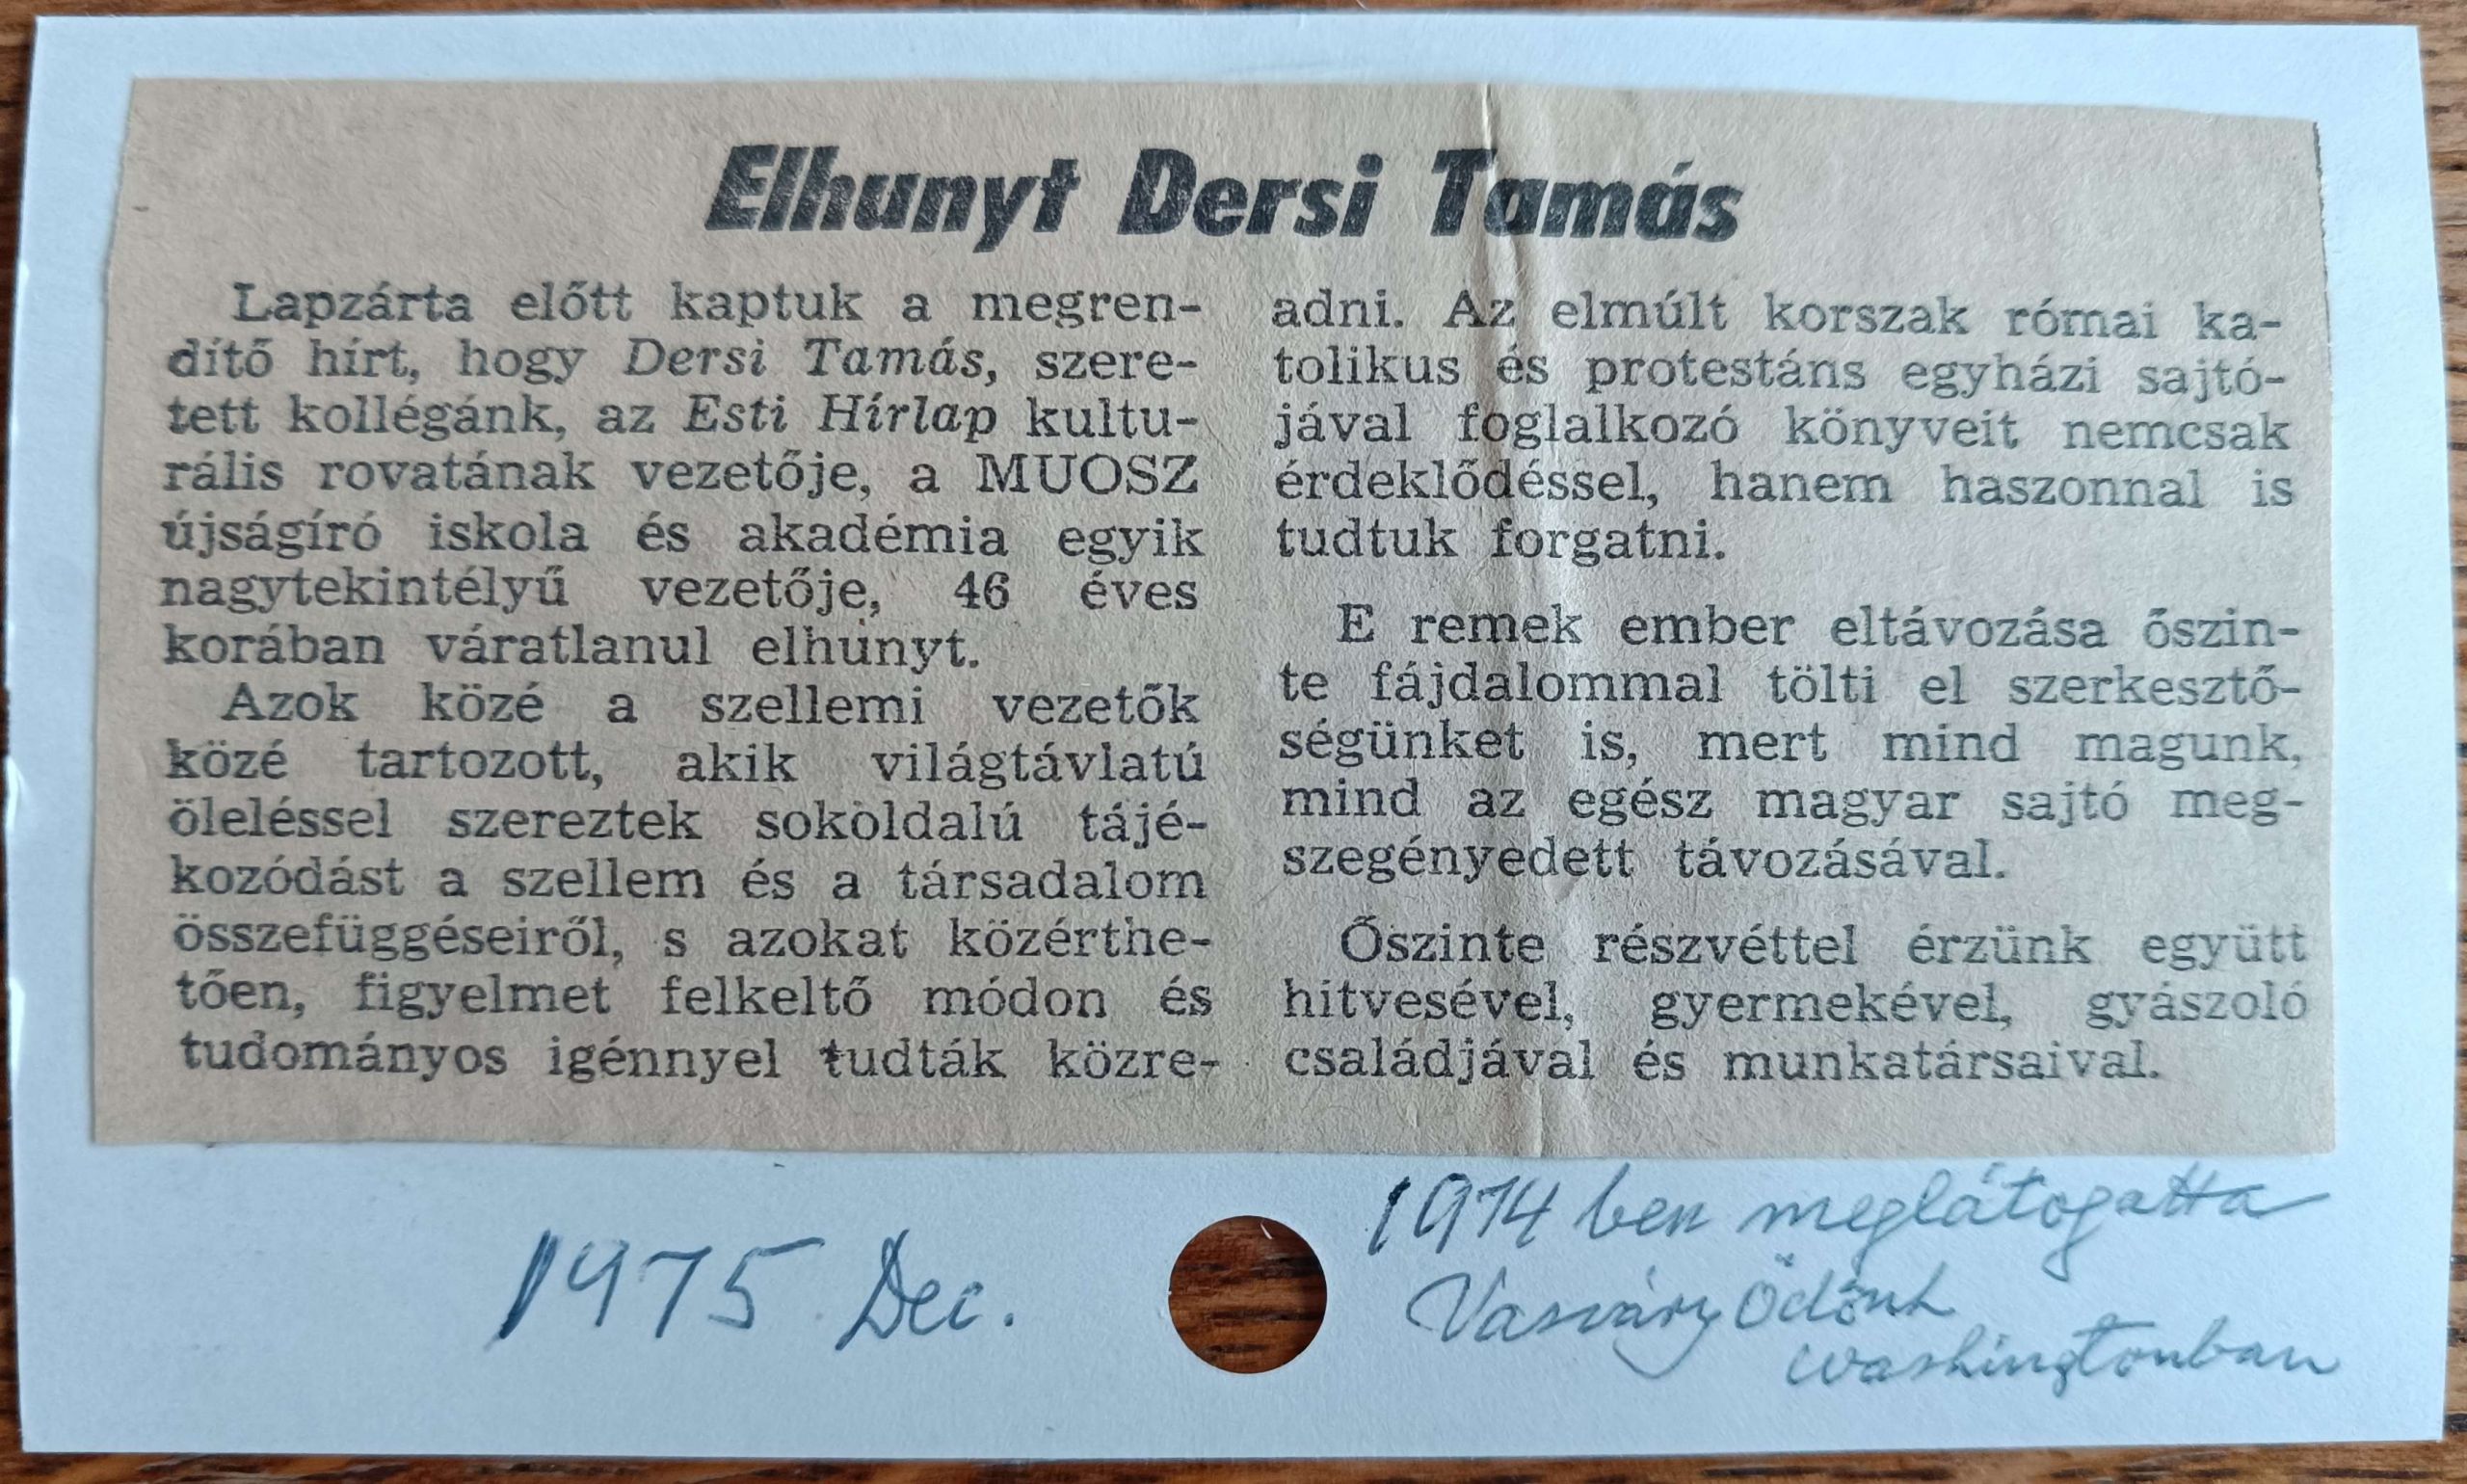 Elhunyt Dersi Tamás
Lapzárta előtt kaptuk a megren-
dítő hírt, hogy Dersi Tamás, szere-
tett kollégánk, az Esti Hírlap kultu-
rális rovatának vezetője, a MUOSZ
újságíró iskola és akadémia egyik
nagytekintélyű vezetője, 46 éves
korában váratlanul elhunyt.
Azok közé a szellemi vezetők
közé tartozott, akik világtávlatú
öleléssel szereztek sokoldalú tájé-
kozódást a szellem és a társadalom
összefüggéseiről, s azokat közérthe-
tően, figyelmet felkeltő módon és
tudományos igénnyel tudták közre-
adni. Az elmúlt korszak római ka-
tolikus és protestáns egyházi sajtó-
jával foglalkozó könyveit nemcsak
érdeklődéssel, hanem haszonnal is
tudtuk forgatni.
E remek ember eltávozása őszin-
te fájdalommal tölti el szerkesztő-
ségünket is, mert mind magunk,
mind az egész magyar sajtó meg-
szegényedett távozásával.
Őszinte részvéttel érzünk együtt
hitvesével, gyermekével, gyászoló
családjával és munkatársaival.
1975 Dec.
1974 ben meglátogatta
Vasváry Ödönt
washingtonban